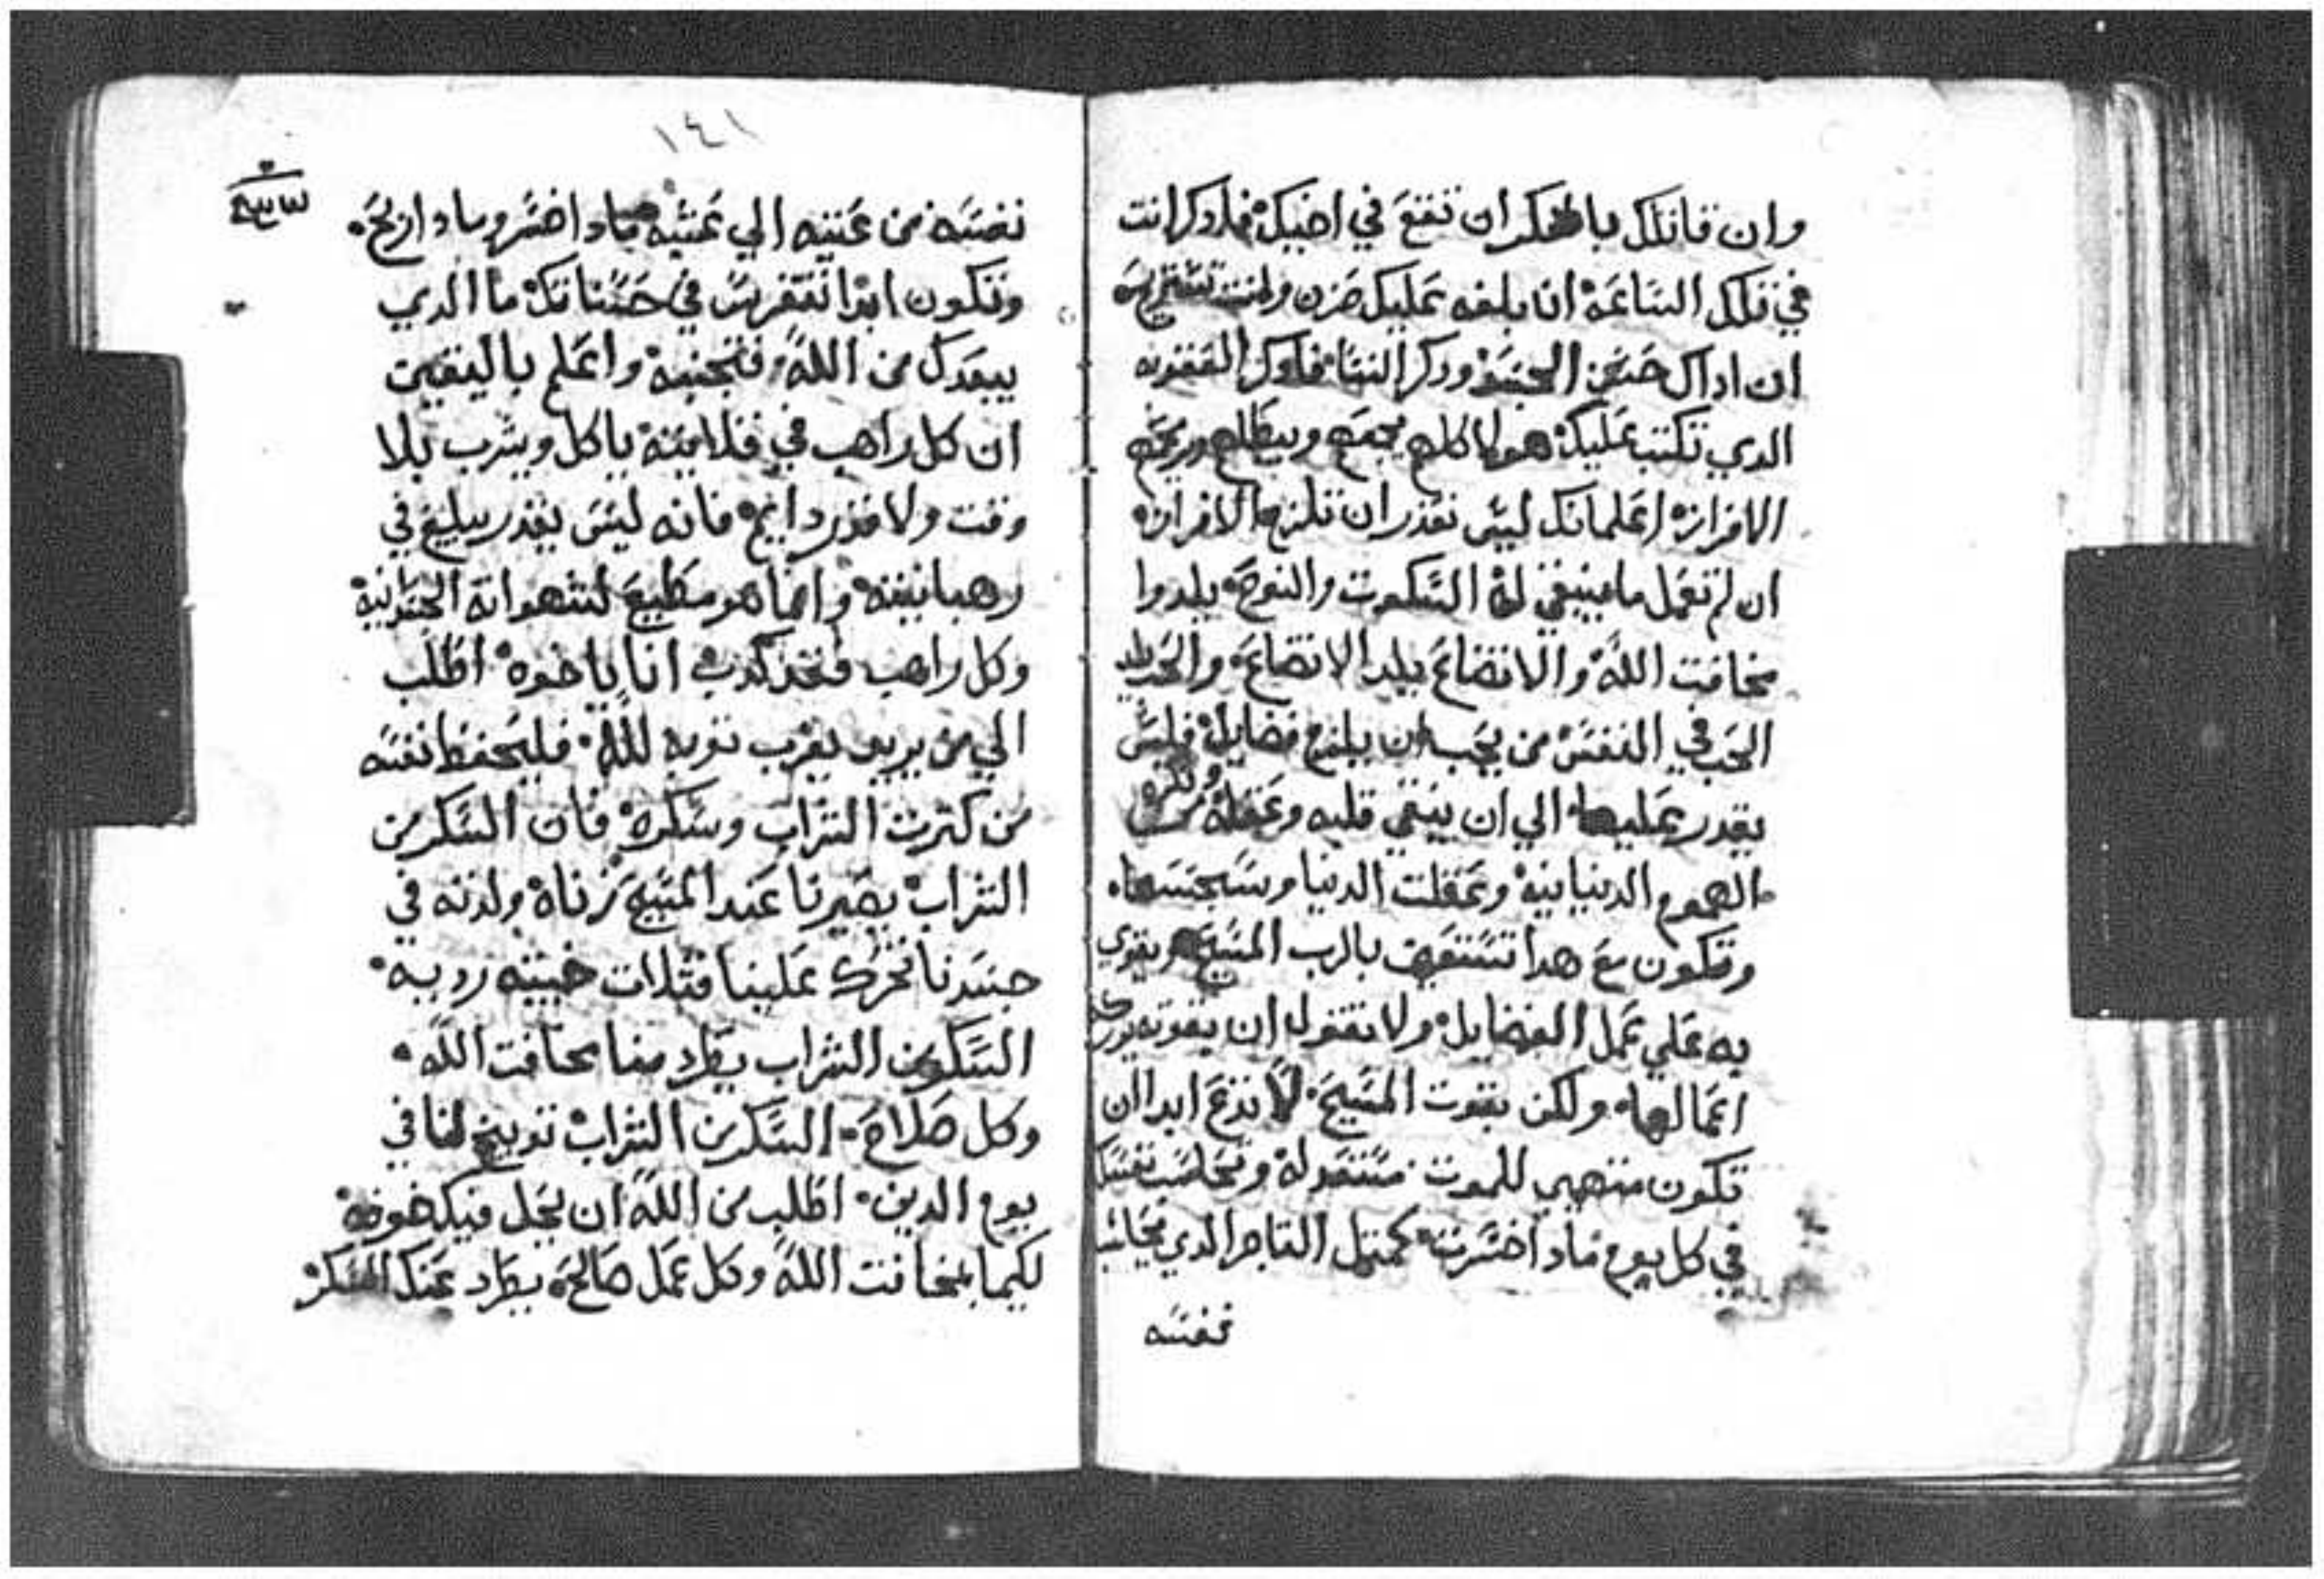 وان قاتلك بالفكر ان تقع في اخيك فادكر انت
في تلك الساعة انا بلغه عليك حزن
ان اداك حسن الجسد ودكر النسا فادكر العفونه
الدي تكتب عليك هولا كلهم يجمعهم ويبطلهم
الافراز اعلم انك ليس تقدر ان تلزم الافراز
ان لم تعمل ما ينبغي له السكوت والنوح يلدوا
مخافت الله والاتضاع يلد الاتضاع والحب يلد
الحب في النفس من يحب ان يبلغ فضايله فليس
يقدر عليها الي ان ينقي قلبه وعقله من
الهموم الدنيانيه وغفلت الدنيا وسجسها
وتكون مع هدا تستعين بالرب المسيح ويقوي
به علي عمل الفضايل ولا تقول ان بقوته
اعمالها ولكن بقوت المسيح لا تدع ابدا ان
تكون متهيي للموت مستعد له وتحاسب نفسك
في كل يوم مادا خسرت كمتل التاجر الدي يحاسب
نفسه
١٤١
نفسه من عشيه الي عشيه مادا خسر ومادا ربح
وتكون ابدا تتفرس في حسناتك ما الدي
يبعدك من الله فتجنبه واعلم باليقين
ان كل راهب في قلايته ياكل ويشرب بلا
وقت ولا قدر دايم فانه ليس يقدر يبلغ في
رهبانيته وانما هو مطيع لشهواته الجسدانيه
وكل راهب انا يا خوه اطلب
الي من يريد يقرب توبه لله فليحفظ نفسه
من كترت الشراب وسكره فان السكر من
الشراب يصيرنا عند المسيح زناه ولدته في
جسدنا تحرك علينا قتلات خبيته رديه
السكر من الشراب يطرد منا مخافت الله
وكل صلاح السكر من الشراب توبيخ لنا في
يوم الدين اطلب من الله ان يجعل فيك خوفه
لكيما بمخافت الله وكل عمل صالح يطرد عنك السكر